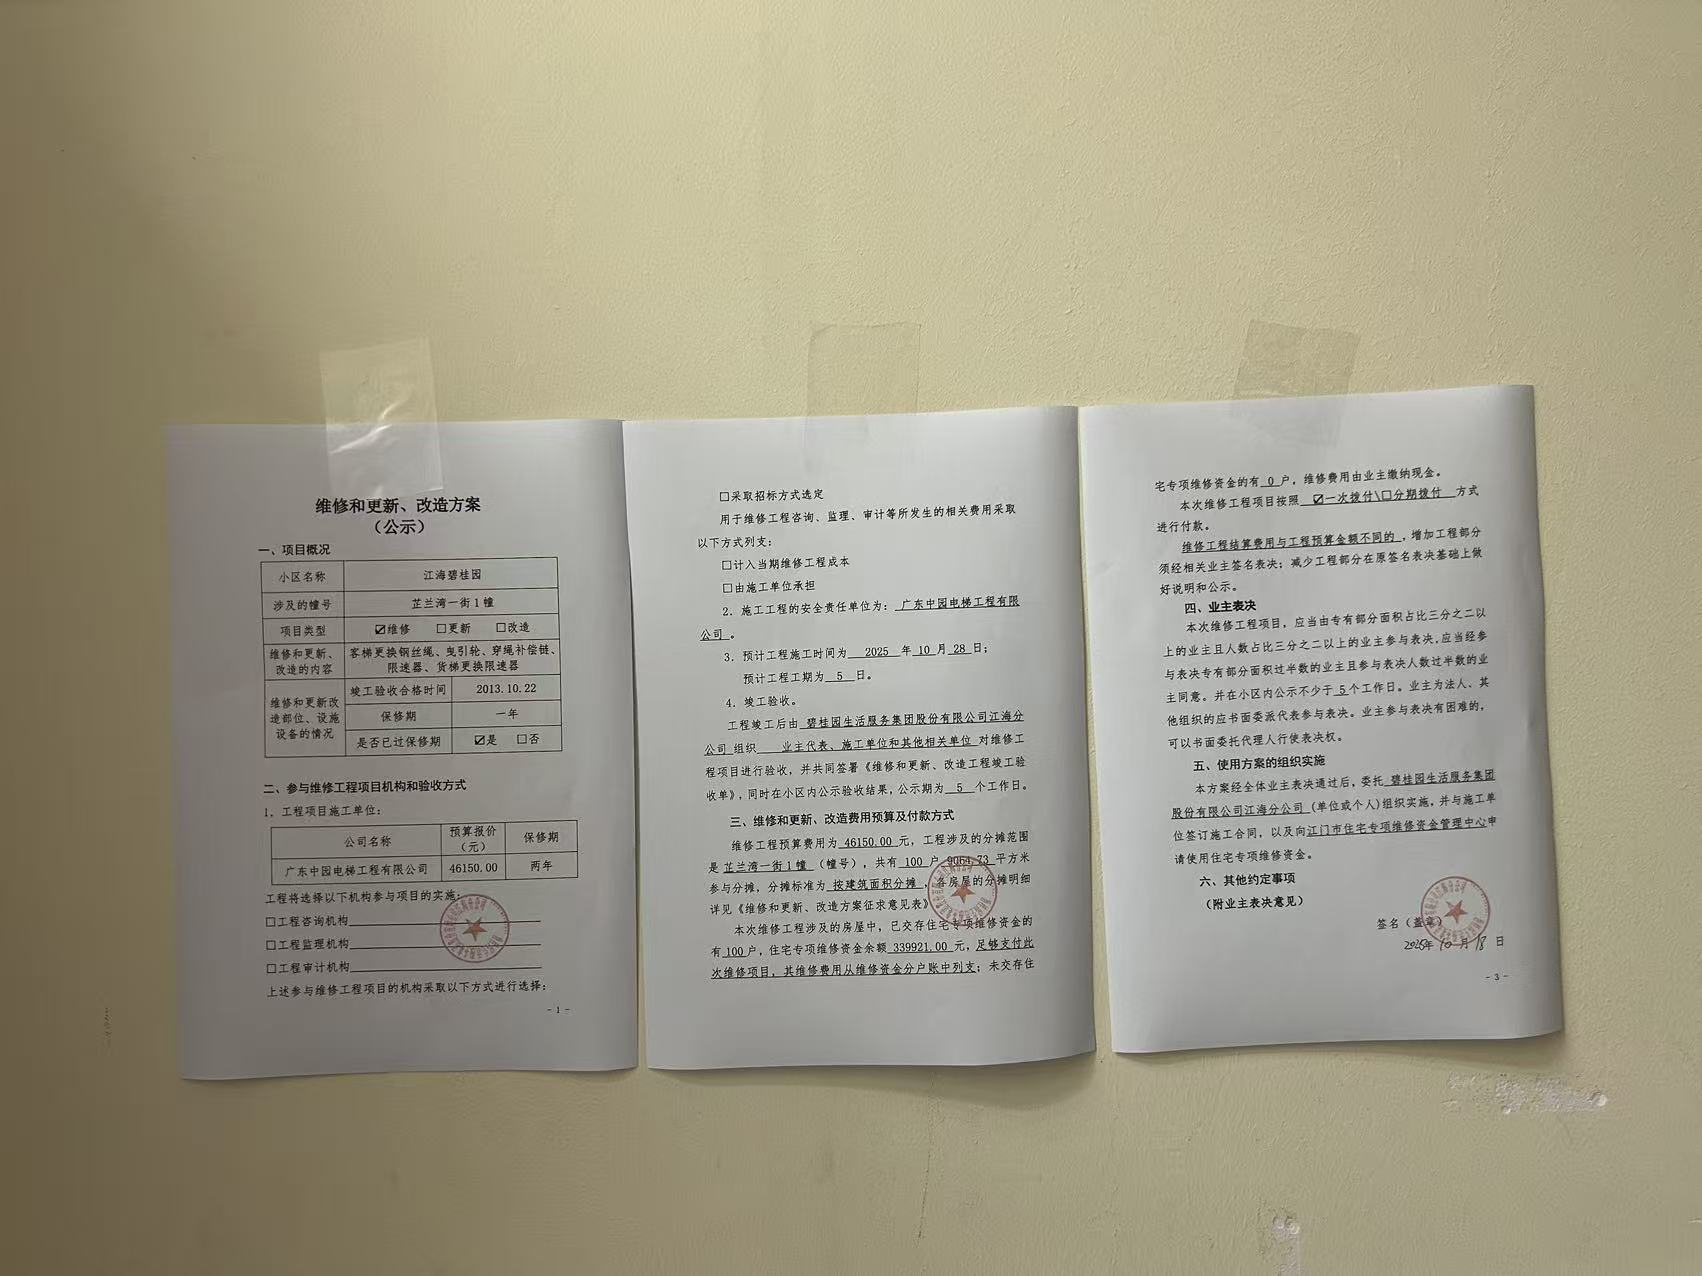 维修和更新、改造方案
（公示）
一、项目概况
小区名称 江海碧桂园
涉及的幢号 芷兰湾一街1幢
项目类型 ☑维修 □更新 □改造
维修和更新、改造的内容 客梯更换钢丝绳、曳引轮、穿绳补偿链、限速器、货梯更换限速器
维修和更新改造部位、设施设备的情况 竣工验收合格时间 2013.10.22
保修期 一年
是否已过保修期 ☑是 □否
二、参与维修工程项目机构和验收方式
1. 工程项目施工单位：
公司名称 预算报价（元） 保修期
广东中园电梯工程有限公司 46150.00 两年
工程将选择以下机构参与项目的实施：
□工程咨询机构
□工程监理机构
□工程审计机构
上述参与维修工程项目的机构采取以下方式进行选择：
- 1 -
□采取招标方式选定
用于维修工程咨询、监理、审计等所发生的相关费用采取
以下方式列支：
□计入当期维修工程成本
□由施工单位承担
2. 施工工程的安全责任单位为：广东中园电梯工程有限
公司。
3. 预计工程施工时间为 2025 年 10 月 28 日；
预计工程工期为 5 日。
4. 竣工验收。
工程竣工后由 碧桂园生活服务集团股份有限公司江海分
公司 组织 业主代表、施工单位和其他相关单位 对维修工
程项目进行验收，并共同签署《维修和更新、改造工程竣工验
收单》，同时在小区内公示验收结果，公示期为 5 个工作日。
三、维修和更新、改造费用预算及付款方式
维修工程预算费用为 46150.00 元，工程涉及的分摊范围
是 芷兰湾一街1幢 （幢号），共有 100 户 9064.73 平方米
参与分摊，分摊标准为 按建筑面积分摊 ，各房屋的分摊明细
详见《维修和更新、改造方案征求意见表》
本次维修工程涉及的房屋中，已交存住宅专项维修资金的
有 100 户，住宅专项维修资金余额 339921.00 元，足够支付此
次维修项目，其维修费用从维修资金分户账中列支；未交存住
宅专项维修资金的有 0 户，维修费用由业主缴纳现金。
本次维修工程项目按照 ☑一次拨付\□分期拨付 方式
进行付款。
维修工程结算费用与工程预算金额不同的，增加工程部分
须经相关业主签名表决；减少工程部分在原签名表决基础上做
好说明和公示。
四、业主表决
本次维修工程项目，应当由专有部分面积占比三分之二以
上的业主且人数占比三分之二以上的业主参与表决，应当经参
与表决专有部分面积过半数的业主且参与表决人数过半数的业
主同意。并在小区内公示不少于 5 个工作日。业主为法人、其
他组织的应书面委派代表参与表决。业主参与表决有困难的，
可以书面委托代理人行使表决权。
五、使用方案的组织实施
本方案经全体业主表决通过后，委托 碧桂园生活服务集团
股份有限公司江海分公司 (单位或个人)组织实施，并与施工单
位签订施工合同，以及向江门市住宅专项维修资金管理中心申
请使用住宅专项维修资金。
六、其他约定事项
（附业主表决意见）
签名（盖章）
2025年 10 月 18 日
- 3 -